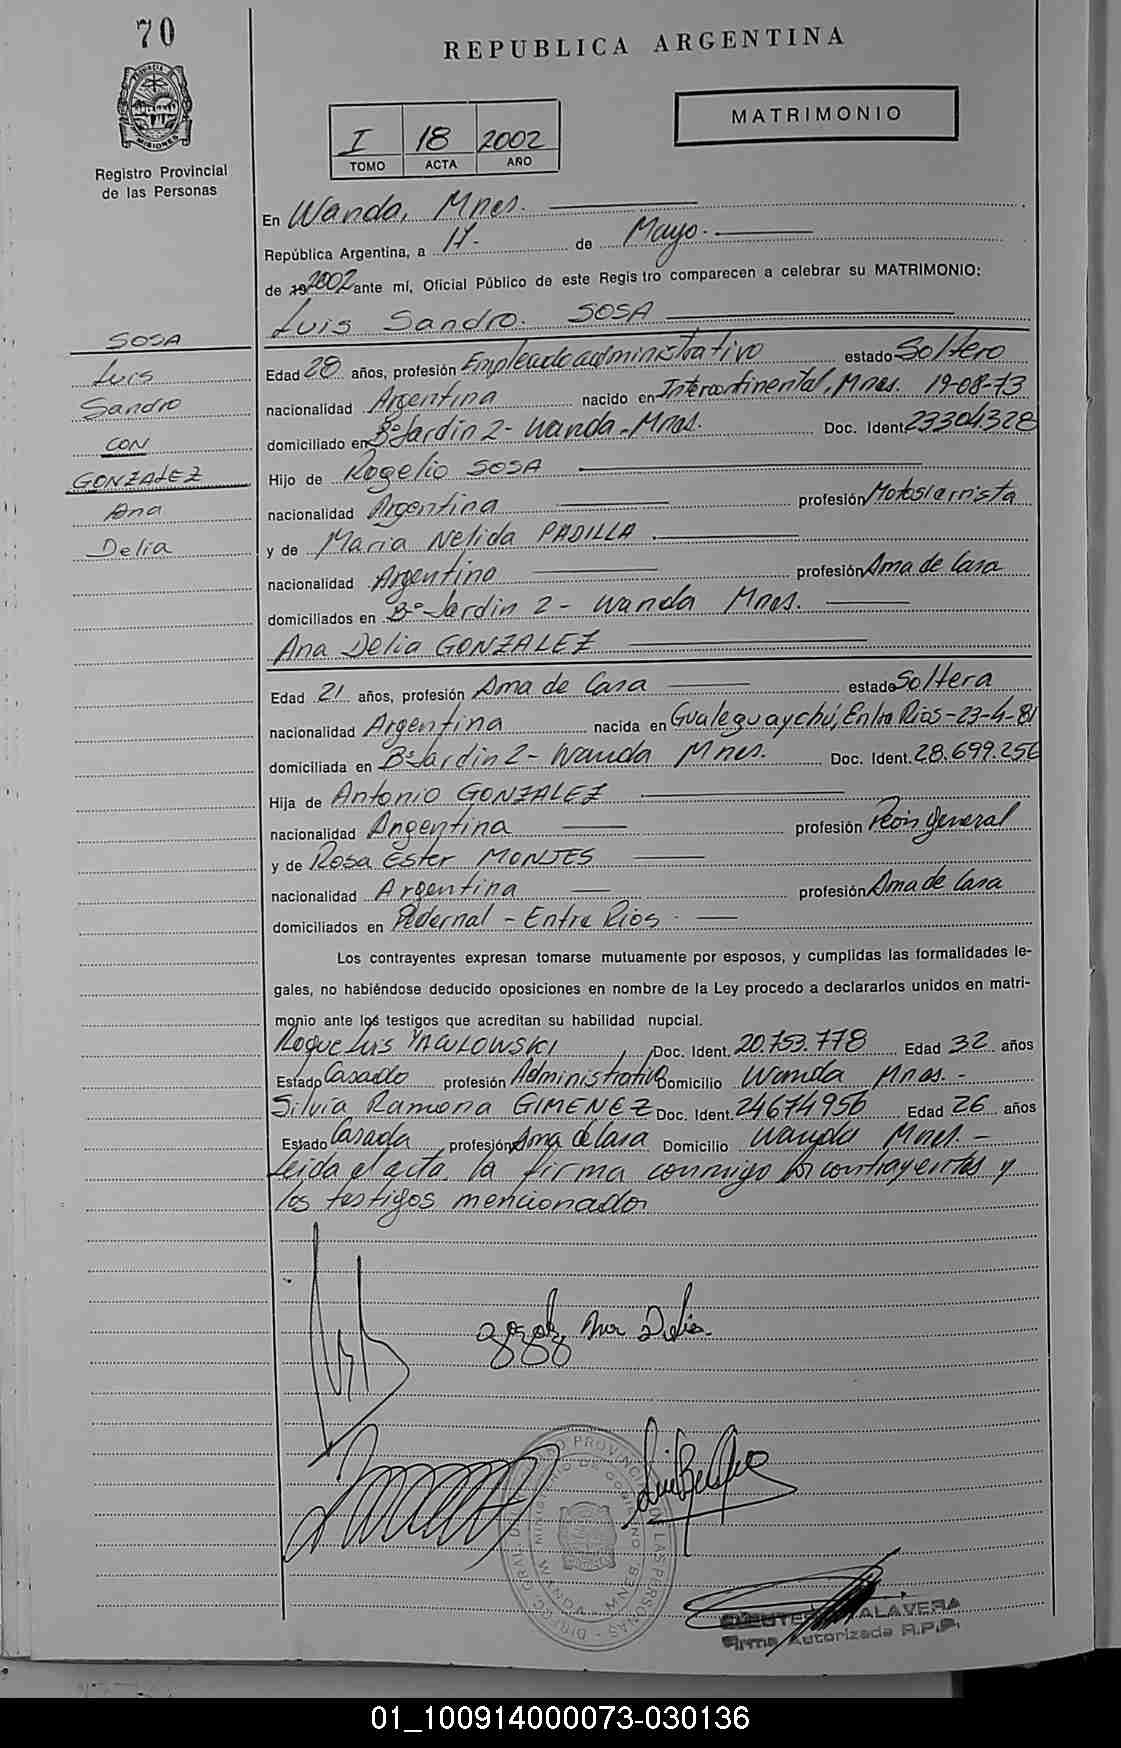 70
REPUBLICA ARGENTINA
MATRIMONIO
I 18 2002
TOMO ACTA AÑO
Registro Provincial
de las Personas
En Wanda, Mnes.
República Argentina, a 17.- de Mayo.-
de 19 2002 ante mí, Oficial Público de este Registro comparecen a celebrar su MATRIMONIO:
Luis Sandro. SOSA
SOSA
Luis
Sandro
CON
GONZALEZ
Ana
Delia
Edad 28 años, profesión Empleado administrativo estado Soltero
nacionalidad Argentina nacido en Intercontinental, Mnes. 19-08-73
domiciliado en Bº Jardin 2 - Wanda - Mnes. Doc. Ident. 23304328
Hijo de Rogelio SOSA
nacionalidad Argentina profesión Motosierrista
y de Maria Nelida PADILLA
nacionalidad Argentina profesión Ama de Casa
domiciliados en Bº Jardin 2 - Wanda Mnes.
Ana Delia GONZALEZ
Edad 21 años, profesión Ama de Casa estado Soltera
nacionalidad Argentina nacida en Gualeguaychú, Entre Rios - 23-4-81
domiciliada en Bº Jardin 2 - Wanda Mnes. Doc. Ident. 28.699.256
Hija de Antonio GONZALEZ
nacionalidad Argentina profesión Peón general
y de Rosa Ester MONTES
nacionalidad Argentina profesión Ama de Casa
domiciliados en Pedernal - Entre Rios.
Los contrayentes expresan tomarse mutuamente por esposos, y cumplidas las formalidades le-
gales, no habiéndose deducido oposiciones en nombre de la Ley procedo a declararlos unidos en matri-
monio ante los testigos que acreditan su habilidad nupcial.
Roque Luis YACULOWSKI Doc. Ident. 20.753.778 Edad 32 años
Estado Casado profesión Administrativo Domicilio Wanda Mnes.-
Silvia Ramona GIMENEZ Doc. Ident. 24674956 Edad 26 años
Estado Casada profesión Ama de Casa Domicilio Wanda Mnes.-
Leida el acta, la firma conmigo los contrayentes y
los testigos mencionados
Ana Delia
TALAVERA
Firma Autorizada R.P.P.
01_100914000073-030136